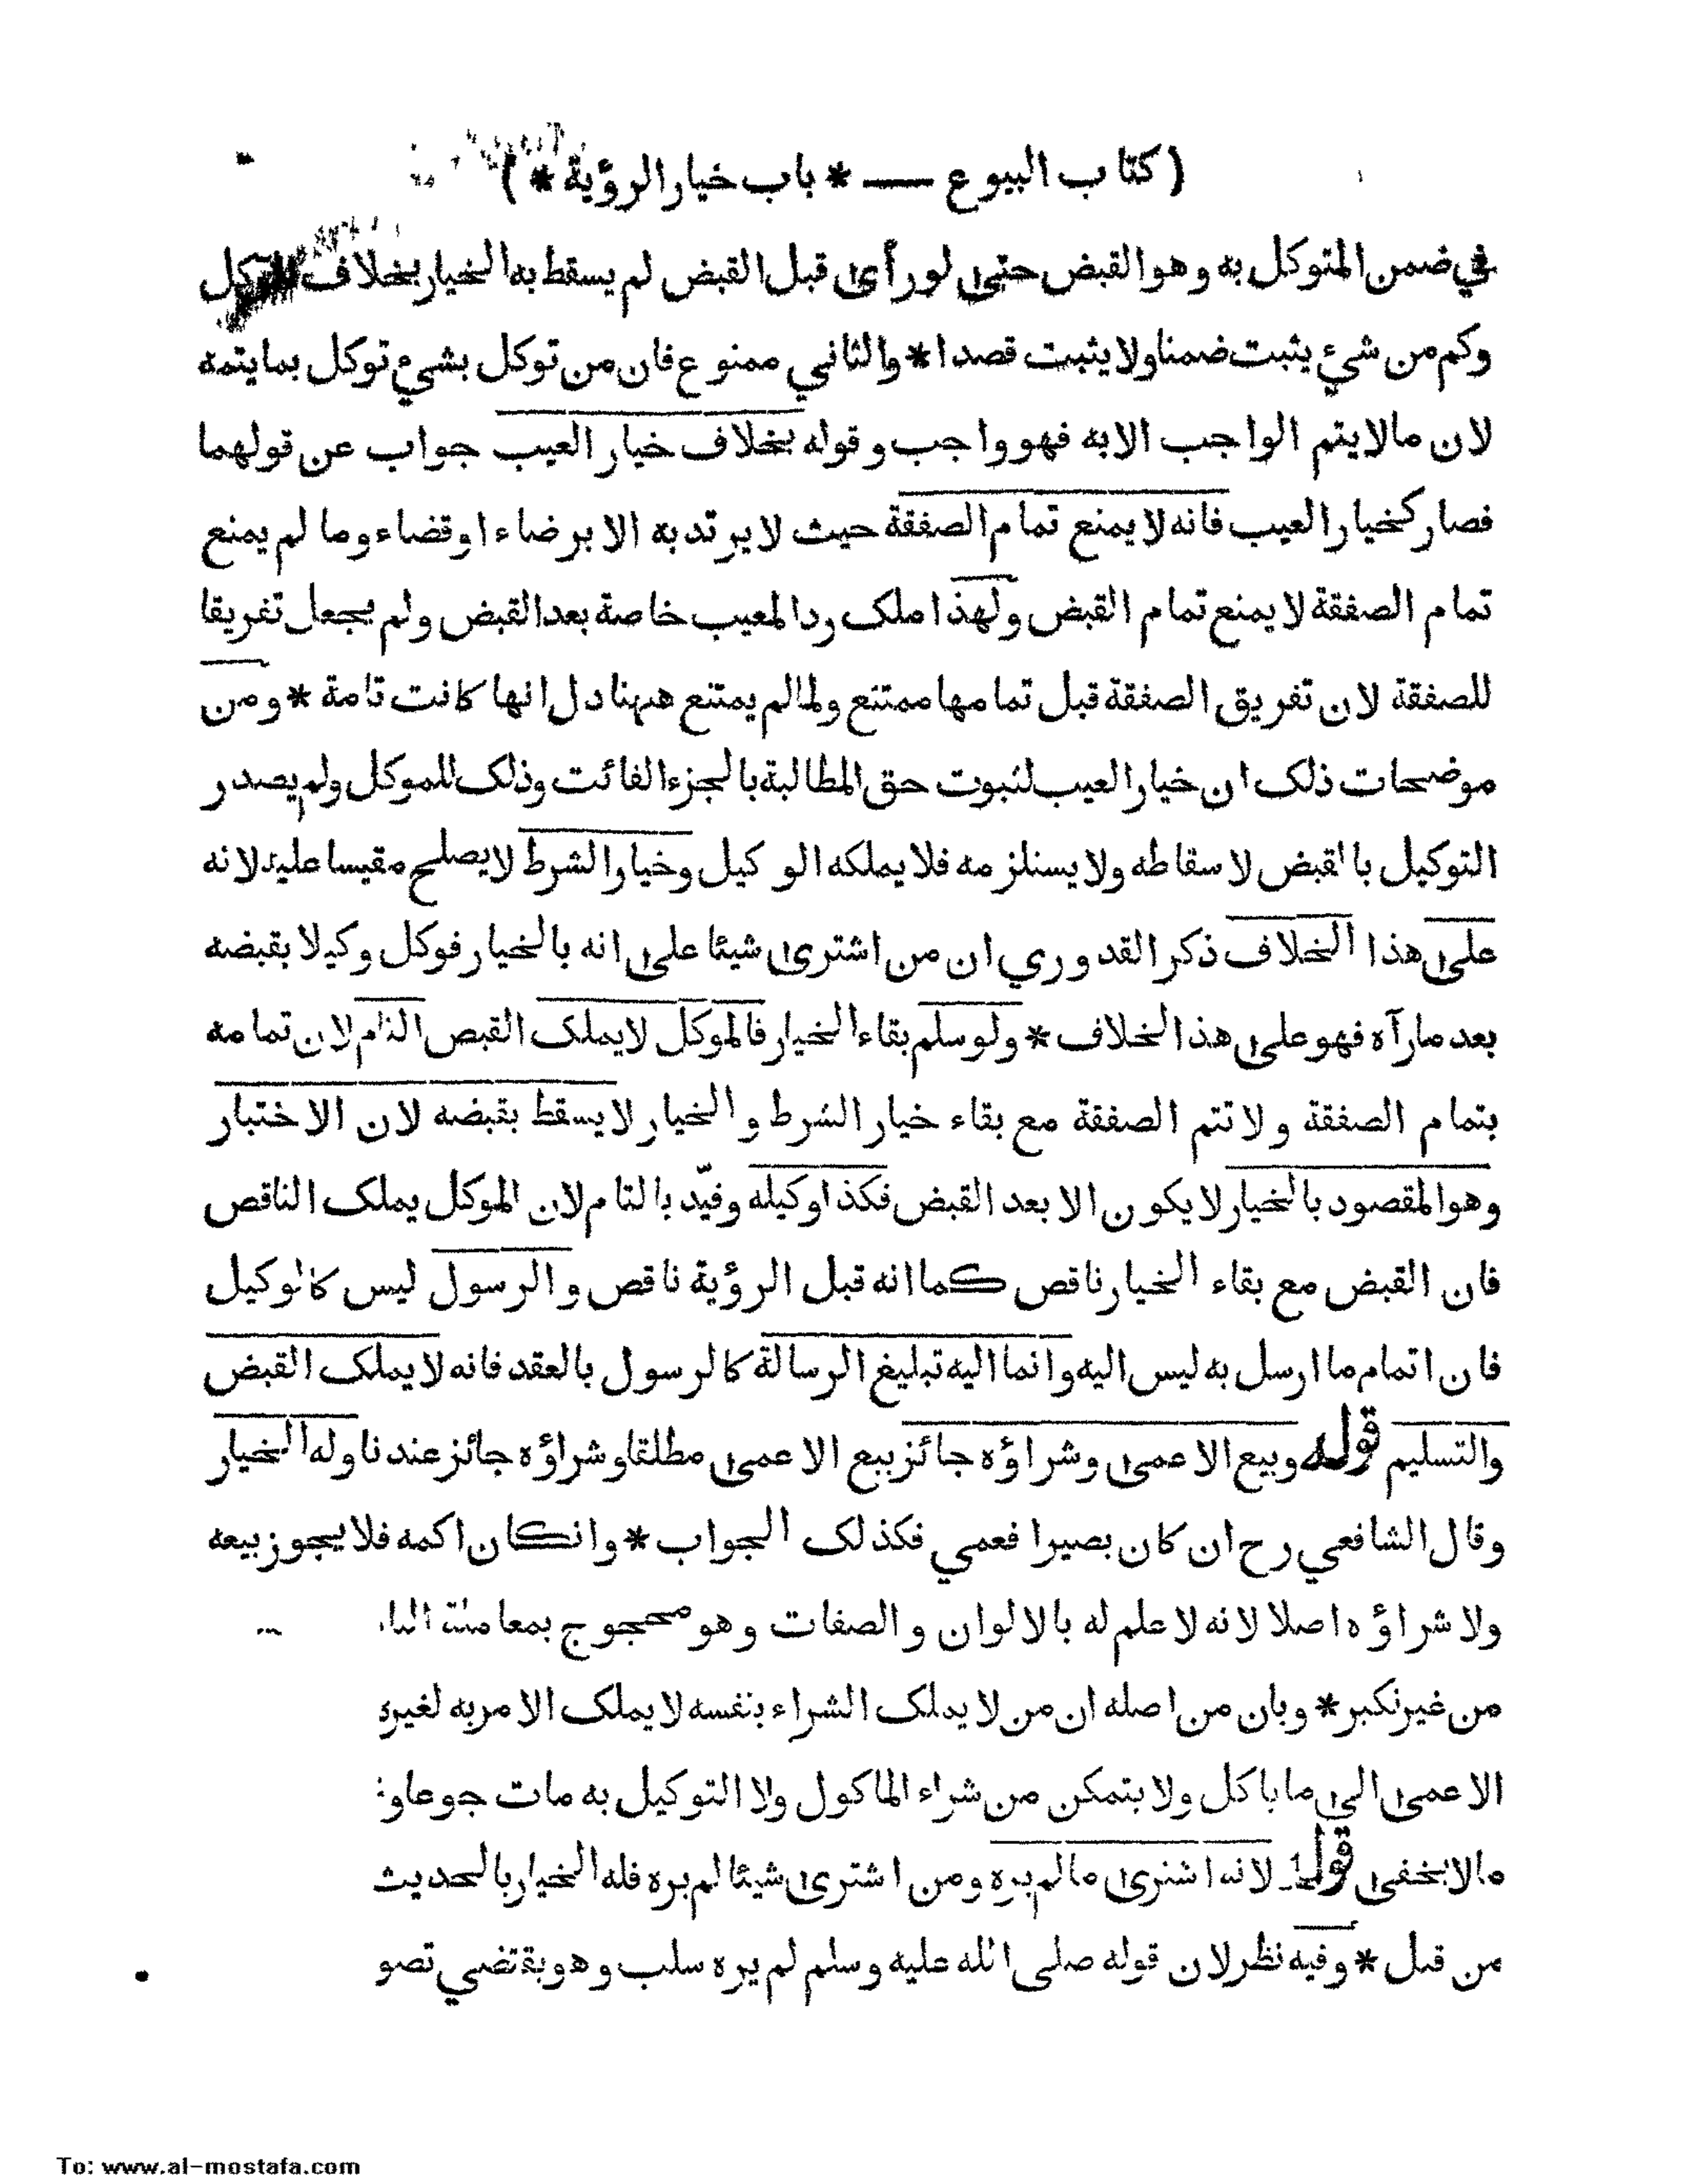 ( كتاب البيوع — * باب خيار الرؤية * )
في ضمن المتوكل به وهو القبض حتى لو رأى قبل القبض لم يسقط به الخيار بخلاف
وكم من شيء يثبت ضمنا ولا يثبت قصدا * والثاني ممنوع فان من توكل بشيء توكل بما يتمه
لان مالا يتم الواجب الا به فهو واجب وقوله بخلاف خيار العيب جواب عن قولهما
فصار كخيار العيب فانه لا يمنع تمام الصفقة حيث لا يرتد به الا برضاء او قضاء وما لم يمنع
تمام الصفقة لا يمنع تمام القبض ولهذا ملك رد المعيب خاصة بعد القبض ولم يجعل تفريقا
للصفقة لان تفريق الصفقة قبل تمامها ممتنع ولما لم يمتنع ههنا دل انها كانت تامة * ومن
موضحات ذلك ان خيار العيب لثبوت حق المطالبة بالجزء الفائت وذلك للموكل ولم يصدر
التوكيل بالقبض لاسقاطه ولا يستلزمه فلا يملكه الوكيل وخيار الشرط لا يصلح مقيسا عليه لانه
على هذا الخلاف ذكر القدوري ان من اشترى شيئا على انه بالخيار فوكل وكيلا بقبضه
بعد ما رآه فهو على هذا الخلاف * ولو سلم بقاء الخيار فالموكل لا يملك القبض التام لان تمامه
بتمام الصفقة ولا تتم الصفقة مع بقاء خيار الشرط والخيار لا يسقط بقبضه لان الاختبار
وهو المقصود بالخيار لا يكون الا بعد القبض فكذا وكيله وقيّد بالتام لان الموكل يملك الناقص
فان القبض مع بقاء الخيار ناقص كما انه قبل الرؤية ناقص والرسول ليس كالوكيل
فان اتمام ما ارسل به ليس اليه وانما اليه تبليغ الرسالة كالرسول بالعقد فانه لا يملك القبض
والتسليم قوله وبيع الاعمى وشراؤه جائز بيع الاعمى مطلقا وشراؤه جائز عندنا وله الخيار
وقال الشافعي رح ان كان بصيرا فعمي فكذلك الجواب * وانكان اكمه فلا يجوز بيعه
ولا شراؤه اصلا لانه لا علم له بالالوان والصفات وهو محجوج بمعاملة
من غير نكير * وبان من اصله ان من لا يملك الشراء بنفسه لا يملك الامر به لغيره
الاعمى الى ما يأكل ولا يتمكن من شراء المأكول ولا التوكيل به مات جوعا
ما لا يخفى قوله لانه اشترى ما لم يره ومن اشترى شيئا لم يره فله الخيار بالحديث
من قبل * وفيه نظر لان قوله صلى الله عليه وسلم لم يره سلب وهو يقتضي تصو
To: www.al-mostafa.com